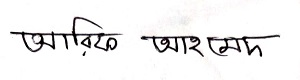 আরিফ আহমেদ